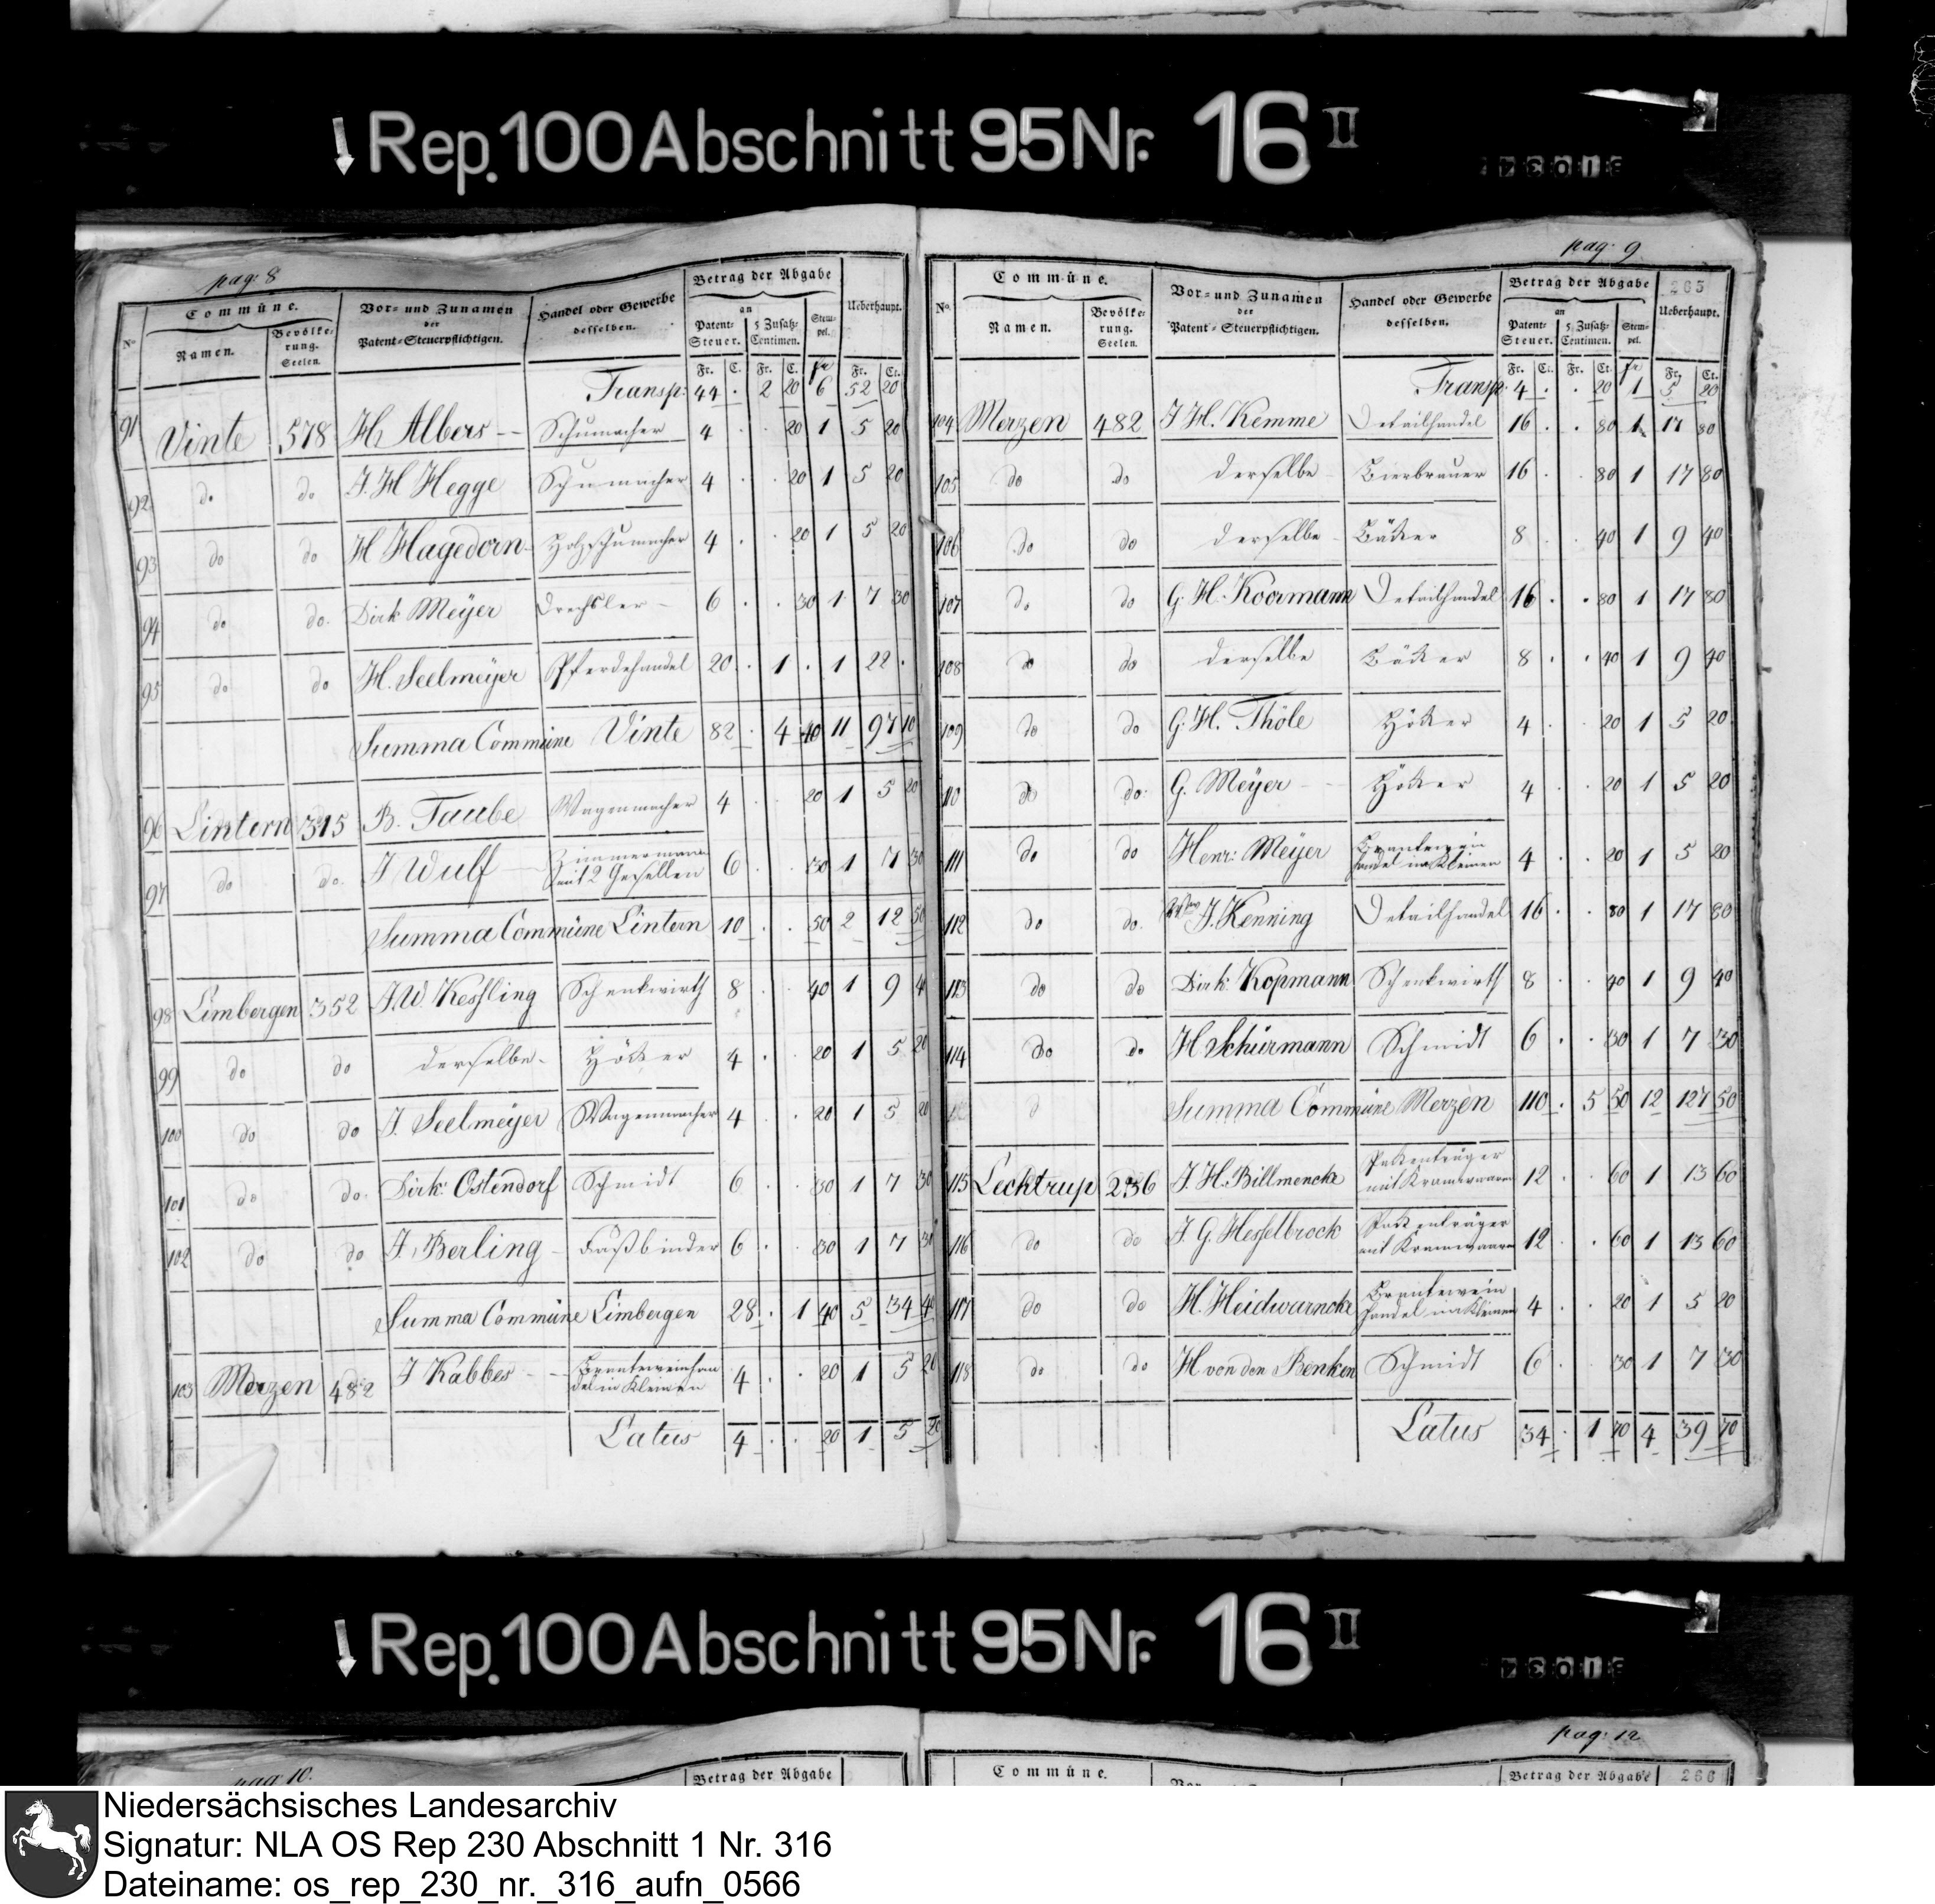 Rep. 100 Abschnitt 95 Nr. 16 II
pag: 8
No.
Commüne.
Namen.
Bevölke-
rung.
Seelen.
Vor- und Zunamen
der
Patent-Steuerpflichtigen.
Handel oder Gewerbe
desselben.
Betrag der Abgabe
an
Patent-
Steuer.
5 Zusatz-
Centimen.
Stem-
pel.
Ueberhaupt.
Fr. C. Fr. C. fr Fr. Ct.
Transp: 44 . 2 20 6 52 20
91 Vinte 578 H. Albers Schumacher 4 . . 20 1 5 20
92 do do J. H Hegge Schumacher 4 . . 20 1 5 20
93 do do H Hagedorn Holzschumacher 4 . . 20 1 5 20
94 do do. Dirk Meÿer Drechsler 6 . . 30 1 7 30
95 do do H. Seelmeÿer Pferdehandel 20 . 1 . 1 22 .
Summa Commüne Vinte 82 . 4 10 11 97 10
96 Lintern 315 B. Taube Wagenmacher 4 . . 20 1 5 20
97 do do. J Wulf Zimmermann
mit 2 Gesellen 6 . . 30 1 7 30
Summa Commüne Lintern 10 . . 50 2 12 50
98 Limbergen 352 J. W. Kessling Schenkwirth 8 . . 40 1 9 4
99 do do derselbe Höker 4 . . 20 1 5 20
100 do do J. Seelmeÿer Wagenmacher 4 . . 20 1 5 20
101 do do. Dirk: Ostendorf Schmidt 6 . . 30 1 7 30
102 do do J. Berling Faßbinder 6 . . 30 1 7 30
Summa Commüne Limbergen 28 . 1 40 5 34 40
103 Merzen 482 J Kabbes Branteweinhan
del in Kleinen 4 . . 20 1 5 20
Latus 4 . . 20 1 5 20
pag: 9
265
No.
Commüne.
Namen.
Bevölke-
rung.
Seelen.
Vor- und Zunamen
der
Patent-Steuerpflichtigen.
Handel oder Gewerbe
desselben.
Betrag der Abgabe
an
Patent-
Steuer.
5 Zusatz-
Centimen.
Stem-
pel.
Ueberhaupt.
Fr. Ct. Fr. Ct. fr Fr. Ct.
Transp. 4 . . 20 1 5 20
104 Merzen 482 J H. Kemme Detailhandel 16 . . 80 1 17 80
105 do do derselbe Bierbrauer 16 . . 80 1 17 80
106 do do derselbe Bäker 8 . . 40 1 9 40
107 do do G. H. Koormann Detailhandel 16 . . 80 1 17 80
108 do do derselbe Bäker 8 . . 40 1 9 40
109 do do G. H. Thöle Höker 4 . . 20 1 5 20
110 do do: G. Meÿer Höker 4 . . 20 1 5 20
111 do do Henr: Meÿer Brantewein
handel im Kleinen 4 . . 20 1 5 20
112 do do. J. Kenning Detailhandel 16 . . 80 1 17 80
113 do do Dirk: Kopmann Schenkwirth 8 . . 40 1 9 40
114 do do H Schürmann Schmidt 6 . . 30 1 7 30
Summa Commüne Merzen 110 . 5 50 12 127 50
115 Lechtrup 236 J. H. Billmencke Pakenträger
mit Kramwaaren 12 . . 60 1 13 60
116 do do J. G. Hesselbrock Pakenträger
mit Kramwaaren 12 . . 60 1 13 60
117 do do H. Heidwarncke Brantewein
handel im Kleinen 4 . . 20 1 5 20
118 do do H von den Benken Schmidt 6 . . 30 1 7 30
Latus 34 . 1 70 4 39 70
Rep. 100 Abschnitt 95 Nr. 16 II
pag: 10.
Betrag der Abgabe
pag: 12
Commüne.
Betrag der Abgabe
266
Niedersächsisches Landesarchiv
Signatur: NLA OS Rep 230 Abschnitt 1 Nr. 316
Dateiname: os_rep_230_nr._316_aufn_0566